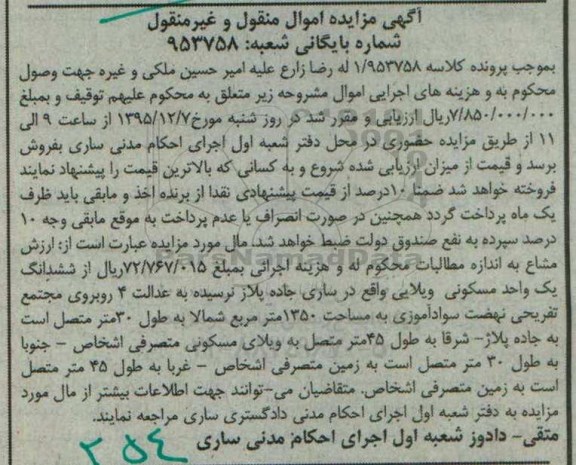 آگهی مزایده اموال منقول و غیرمنقول
شماره بایگانی شعبه: ۹۵۳۷۵۸
بموجب پرونده کلاسه ۱/۹۵۳۷۵۸ له رضا زارع علیه امیر حسین ملکی و غیره جهت وصول
محکوم به و هزینه های اجرایی اموال مشروحه زیر متعلق به محکوم علیهم توقیف و بمبلغ
۷/۸۵۰/۰۰۰/۰۰۰ریال ارزیابی و مقرر شد در روز شنبه مورخ۱۳۹۵/۱۲/۷ از ساعت ۹ الی
۱۱ از طریق مزایده حضوری در محل دفتر شعبه اول اجرای احکام مدنی ساری بفروش
برسد و قیمت از میزان ارزیابی شده شروع و به کسانی که بالاترین قیمت را پیشنهاد نمایند
فروخته خواهد شد ضمنا ۱۰درصد از قیمت پیشنهادی نقدا از برنده اخذ و مابقی باید ظرف
یک ماه پرداخت گردد همچنین در صورت انصراف یا عدم پرداخت به موقع مابقی وجه ۱۰
درصد سپرده به نفع صندوق دولت ضبط خواهد شد. مال مورد مزایده عبارت است از: ارزش
مشاع به اندازه مطالبات محکوم له و هزینه اجرائی بمبلغ ۷۲/۷۶۷/۰۱۵ریال از ششدانگ
یک واحد مسکونی ویلایی واقع در ساری جاده پلاژ نرسیده به عدالت ۴ روبروی مجتمع
تفریحی نهضت سوادآموزی به مساحت ۱۳۵۰متر مربع شمالا به طول ۳۰متر متصل است
به جاده پلاژ- شرقا به طول ۴۵متر متصل به ویلای مسکونی متصرفی اشخاص - جنوبا
به طول ۳۰ متر متصل است به زمین متصرفی اشخاص - غربا به طول ۴۵ متر متصل
است به زمین متصرفی اشخاص. متقاضیان می-توانند جهت اطلاعات بیشتر از مال مورد
مزایده به دفتر شعبه اول اجرای احکام مدنی دادگستری ساری مراجعه نمایند.
متقی- دادورز شعبه اول اجرای احکام مدنی ساری
۲۵۴
ParsNamadData